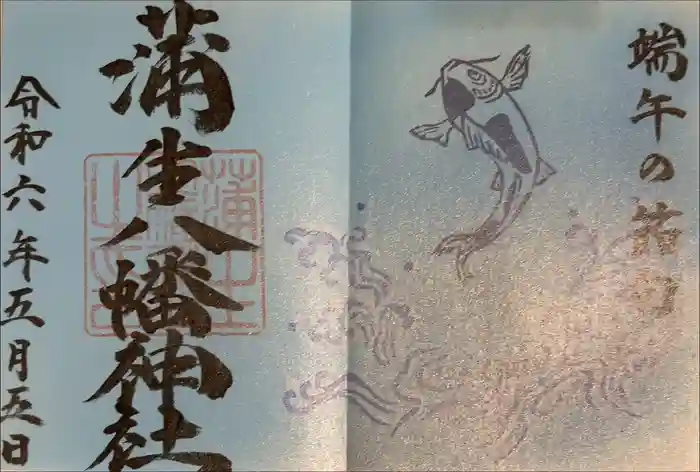 端午の節句
蒲生八幡神社
令和六年五月五日